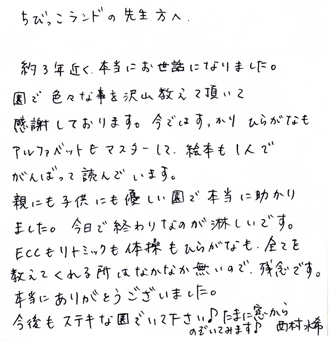 ちびっこランドの先生方へ.
約3年近く、本当にお世話になりました。
園で色々な事を沢山教えて頂いて
感謝しております。今ではすっかりひらがなも
アルファベットもマスターして、絵本も1人で
がんばって読んでいます。
親にも子供にも優しい園で本当に助かり
ました。今日で終わりなのが淋しいです。
ECCもリトミックも体操もひらがなも、全てを
教えてくれる所はなかなか無いので、残念です。
本当にありがとうございました。
今後もステキな園でいて下さい♪たまに窓から
のぞいてみます♪ 西村